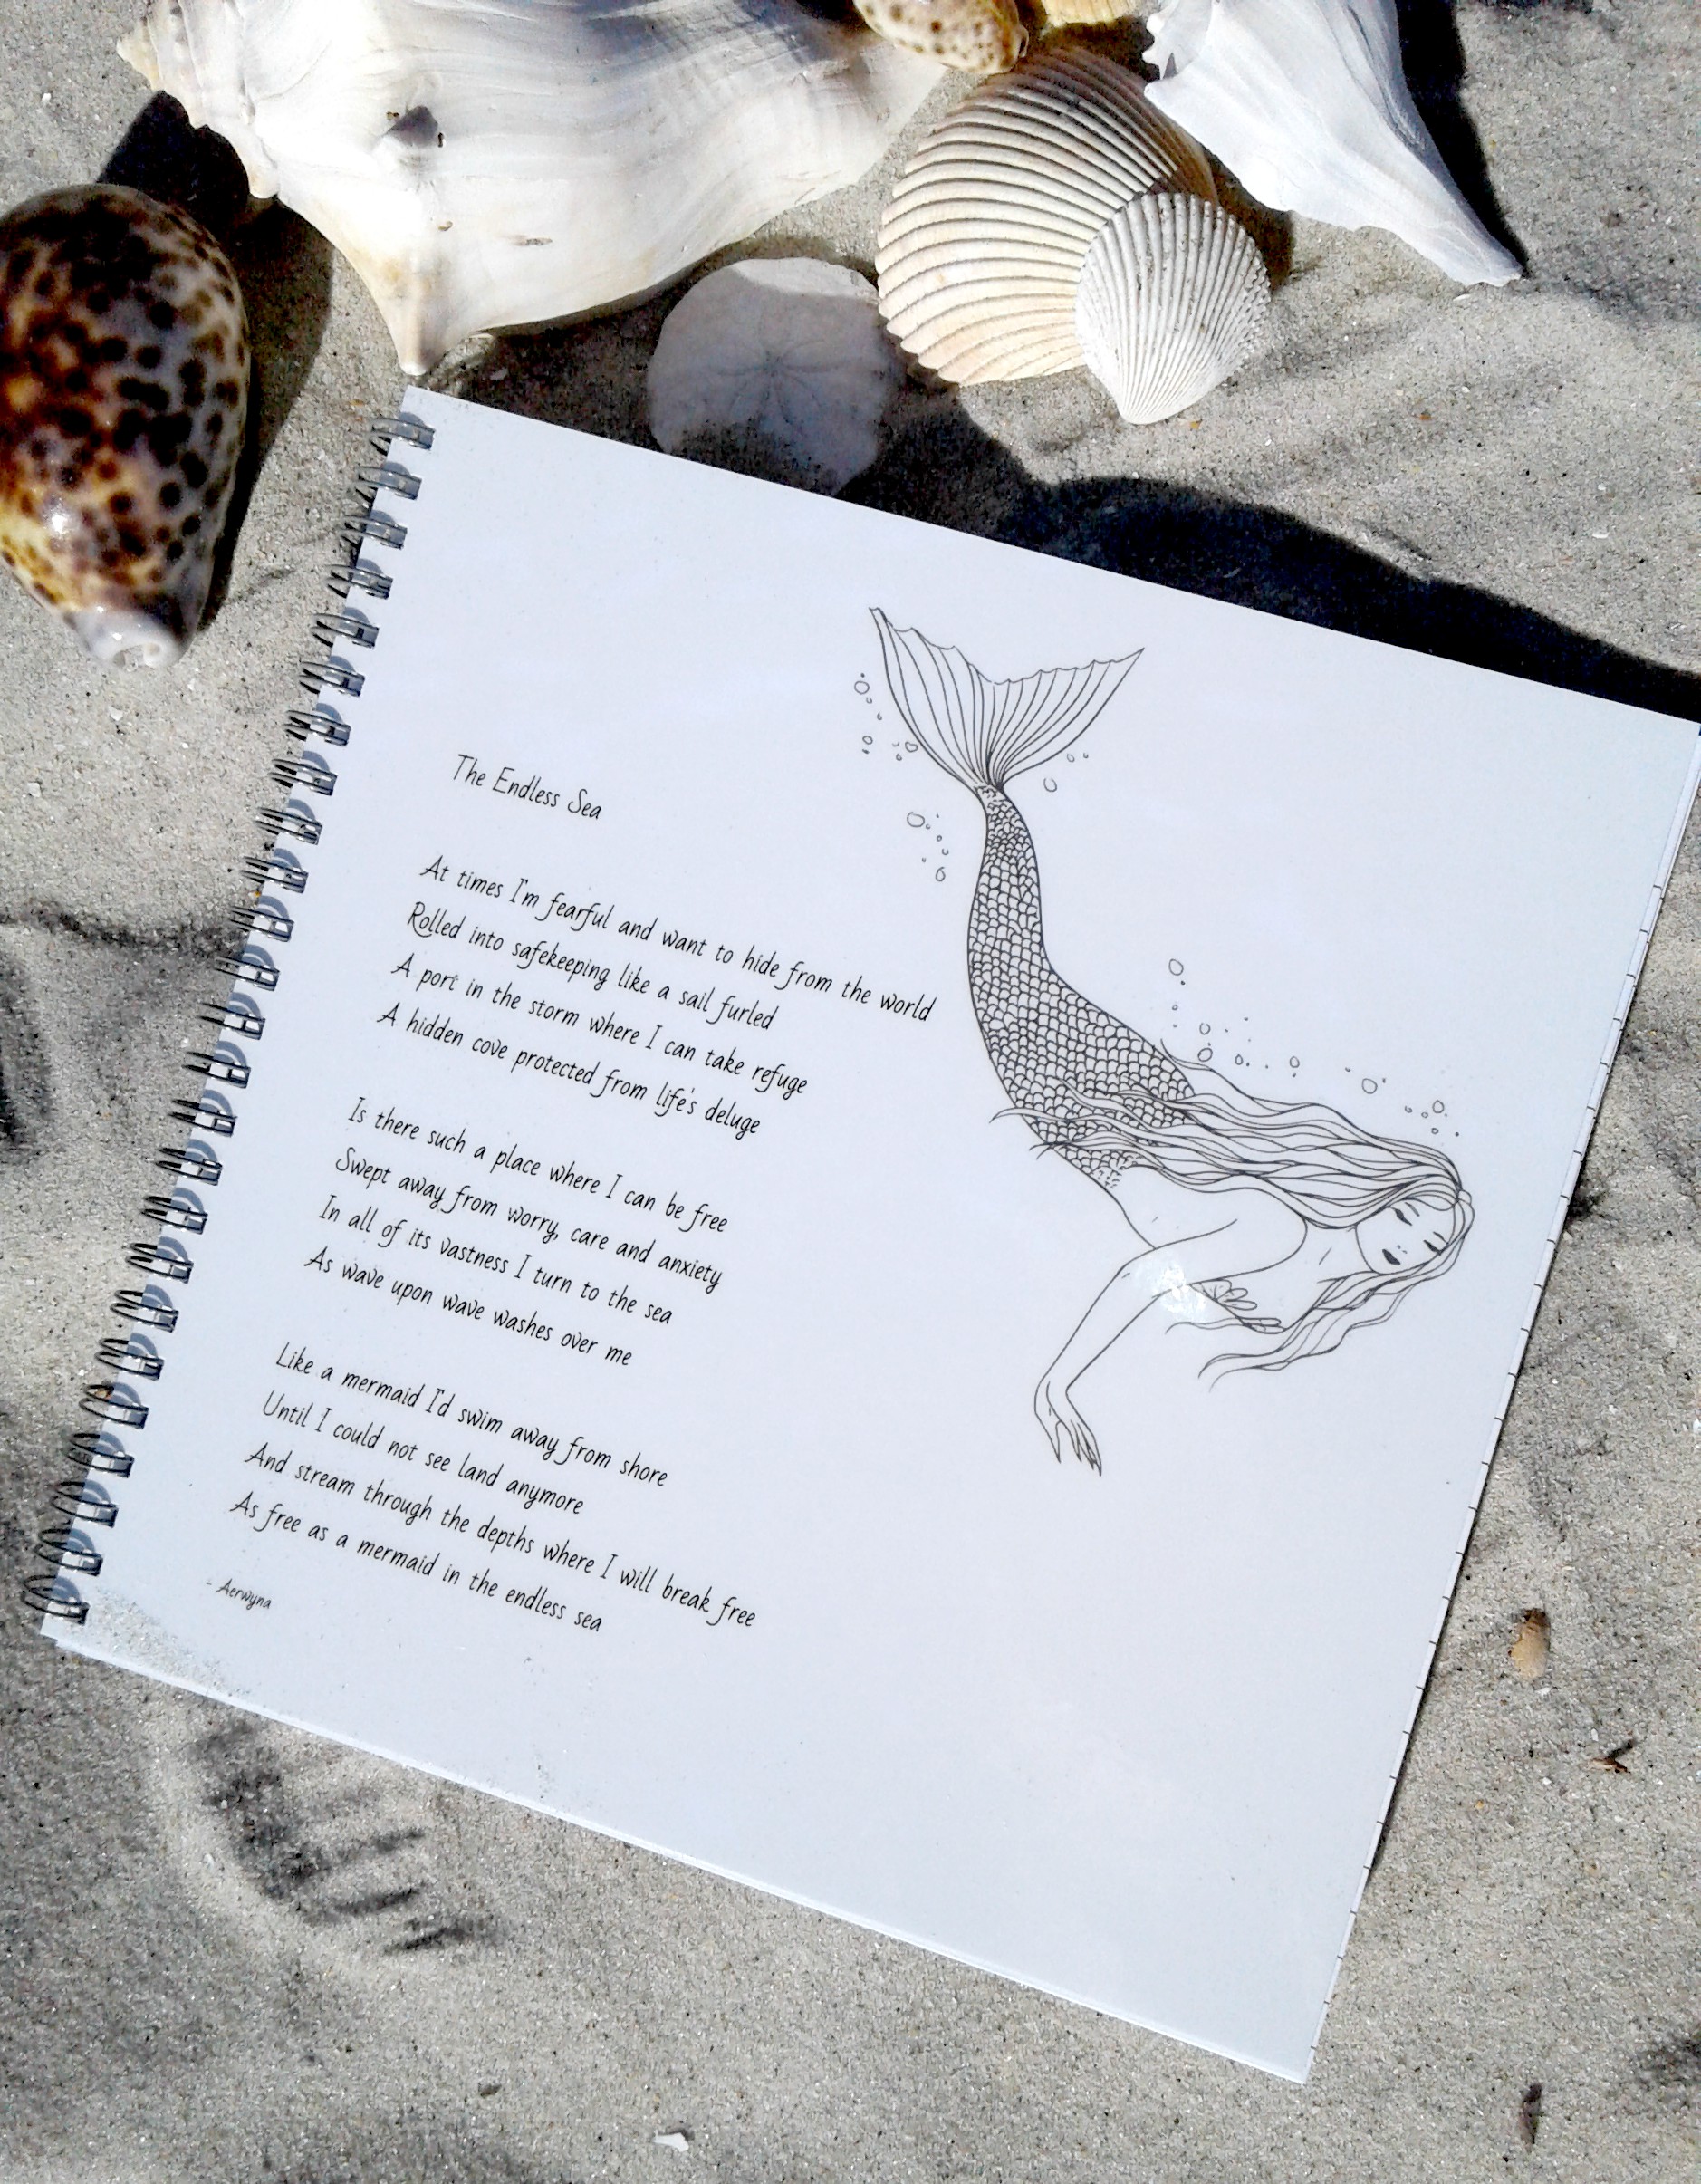 The Endless Sea
At times I'm fearful and want to hide from the world
Rolled into safekeeping like a sail furled
A port in the storm where I can take refuge
A hidden cove protected from life's deluge
Is there such a place where I can be free
Swept away from worry, care and anxiety
In all of its vastness I turn to the sea
As wave upon wave washes over me
Like a mermaid I'd swim away from shore
Until I could not see land anymore
And stream through the depths where I will break free
As free as a mermaid in the endless sea
- Aerwyna